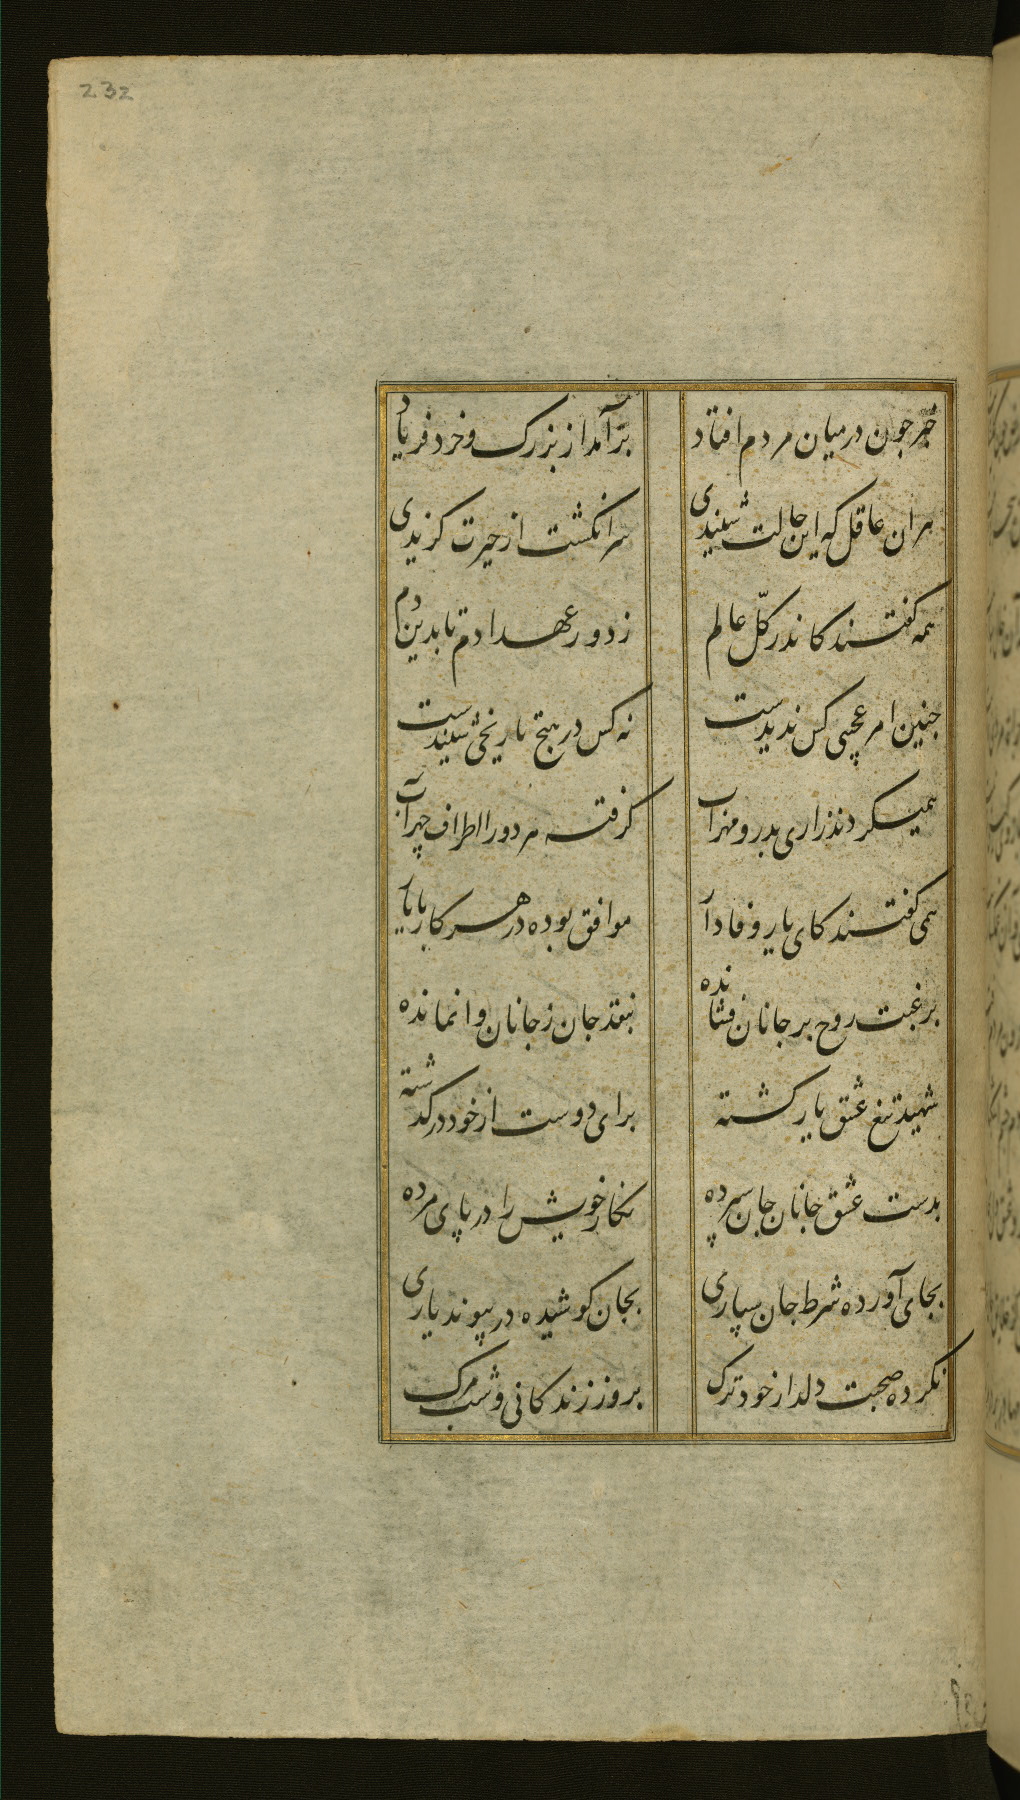 232
خبر جون درمیان مردم افتاد
برآمد از بزرک و خرد فریاد
هران عاقل که این حالت شنیدی
سرانکشت از حیرت کزیدی
همه کفتند کاندر کلّ عالم
ز دور عهد ادم تا بدین دم
جنین امر عجبی کس ندیدست
نه کس در هیج تاریخی شنیدست
همیکردند زاری بدر و مهراب
کرفته هر دو را اطراف
همی کفتند کای یار وفادار
موافق بوده در هر کار با یار
برغبت روح بر جانان فشانده
بنقد جان ز جانان وانمانده
شهید تیغ عشق یار کشته
برای دوست از خود درکذشته
بدست عشق جانان جان سپرده
نکار خویش را در پای مرده
بجای آورده شرط جان سپاری
بجان کوشیده در پیوند یاری
نکرده صحبت دلدار خود ترک
بروز زندکانی و شب مرک